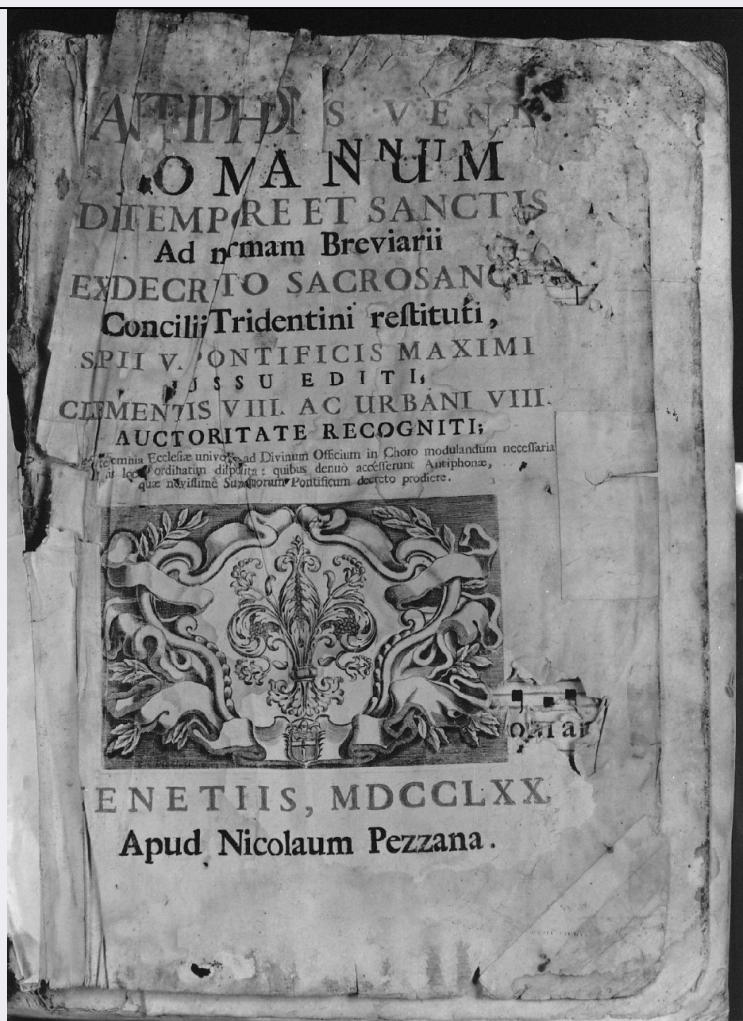 ANTIPHO S VEN E
OMANUM
DITEMPORE ET SANCTIS
Ad normam Breviarii
EX DECRETO SACROSANC
Concilii Tridentini restituti,
S PII V. PONTIFICIS MAXIMI
JUSSU EDITI,
CLEMENTIS VIII. AC URBANI VIII.
AUCTORITATE RECOGNITI;
omnia Ecclesiæ ad Divinum Officium in Choro modulandum necessaria
ordinatim disposita: quibus denuò accesserunt Antiphonæ,
quæ novissimè Summorum Pontificum decreto prodiere.
ENETIIS, MDCCLXX
Apud Nicolaum Pezzana.